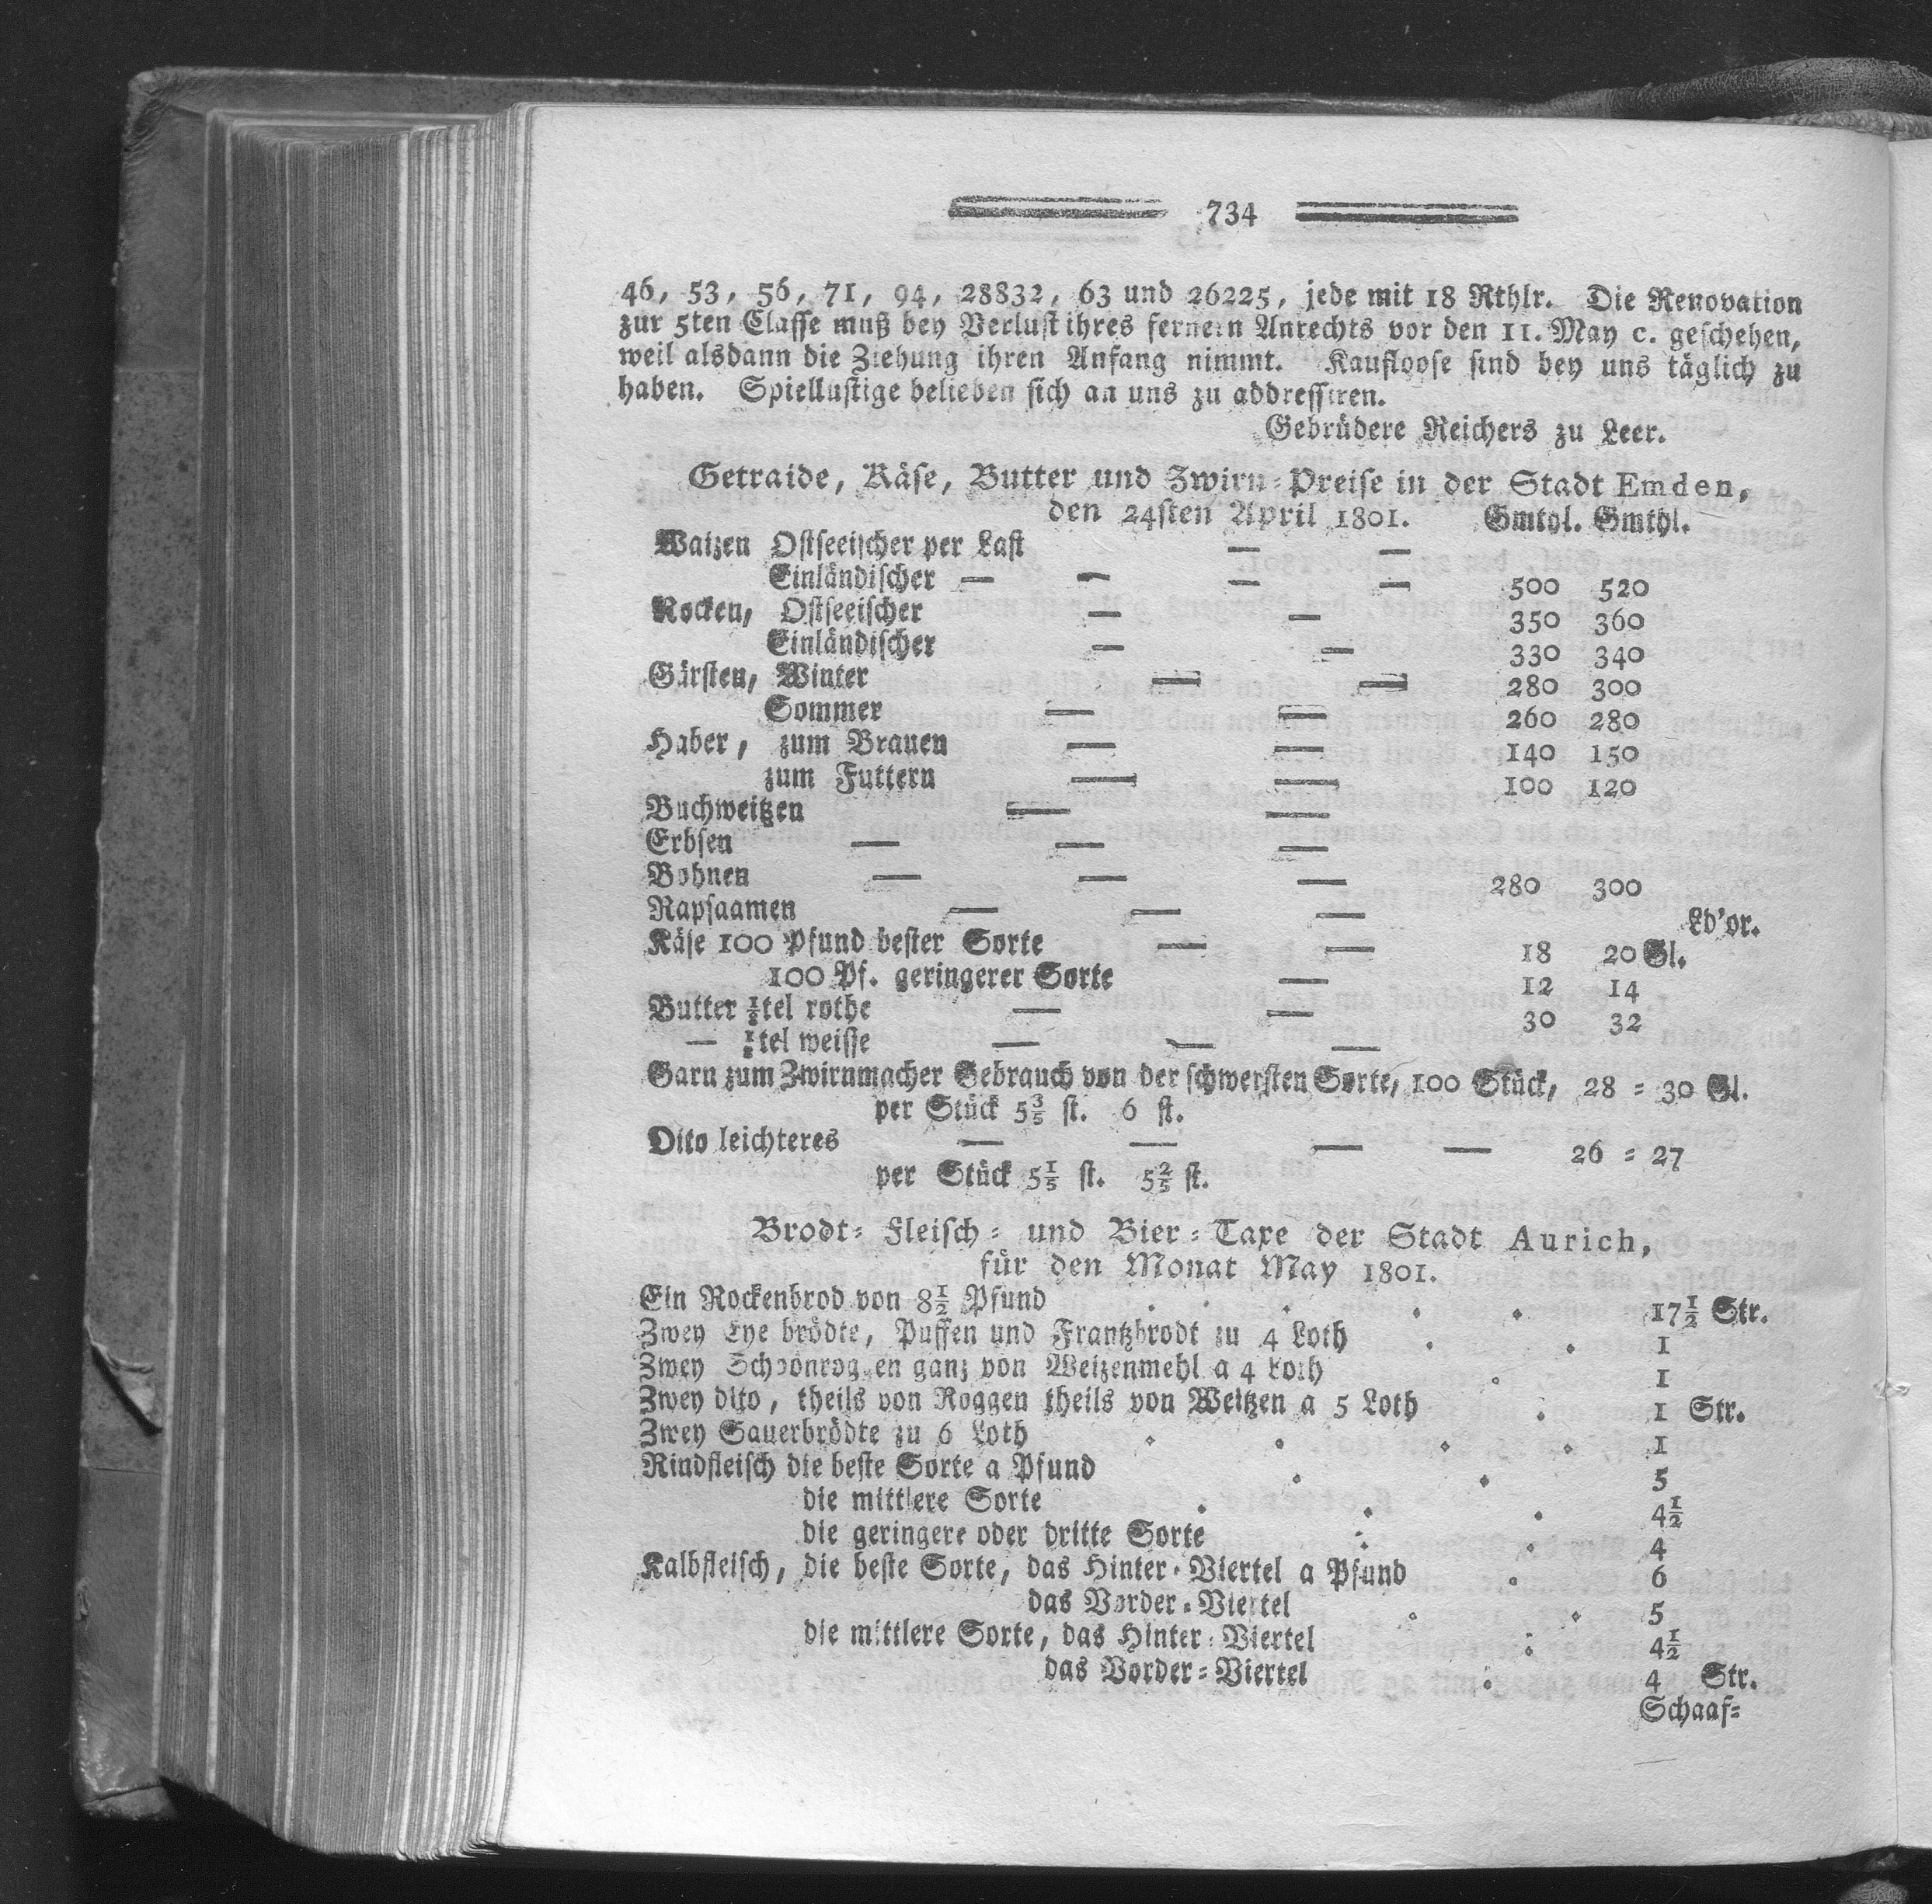 734
46, 53, 56, 71, 94, 28832, 63 und 26225, jede mit 18 Rthlr. Die Renovation
zur 5ten Classe muß bey Verlust ihres fernern Anrechts vor den 11. May c. geschehen,
weil alsdann die Ziehung ihren Anfang nimmt. Kaufloose sind bey uns täglich zu
haben. Spiellustige belieben sich an uns zu addressiren.
Gebrüdere Reichers zu Leer.
Getraide, Käse, Butter und Zwirn-Preise in der Stadt Emden,
den 24sten April 1801. Gmthl. Gmthl.
Waizen Ostseeischer per Last — —
Einländischer — — — — 500 520
Rocken, Ostseeischer — — 350 360
Einländischer — — 330 340
Gärsten, Winter — — 280 300
Sommer — — 260 280
Haber, zum Brauen — — 140 150
zum Futtern — — 100 120
Buchweitzen — —
Erbsen — — —
Bohnen — — — 280 300
Rapsaamen — — — Ld'or.
Käse 100 Pfund bester Sorte — — 18 20 Gl.
100 Pf. geringerer Sorte — 12 14
Butter ⅛tel rothe — — 30 32
— tel weisse — — —
Garn zum Zwirnmacher Gebrauch von der schwersten Sorte, 100 Stück, 28 = 30 Gl.
per Stück 5⅗ st. 6 st.
Dito leichteres — — — — 26 = 27
per Stück 5⅕ st. 5⅖ st.
Brodt- Fleisch- und Bier-Taxe der Stadt Aurich,
für den Monat May 1801.
Ein Rockenbrod von 8½ Pfund . . . . . 17½ Str.
Zwey Eye brödte, Puffen und Frantzbrodt zu 4 Loth . . 1
Zwey Schoonroggen ganz von Weizenmehl a 4 Loth . 1
Zwey dito, theils von Roggen theils von Weitzen a 5 Loth . 1 Str.
Zwey Sauerbrödte zu 6 Loth . . . . 1
Rindfleisch die beste Sorte a Pfund . . 5
die mittlere Sorte . . . 4½
die geringere oder dritte Sorte . . 4
Kalbfleisch, die beste Sorte, das Hinter-Viertel a Pfund . 6
das Vorder-Viertel . . 5
die mittlere Sorte, das Hinter-Viertel . 4½
das Vorder-Viertel . 4 Str.
Schaaf-